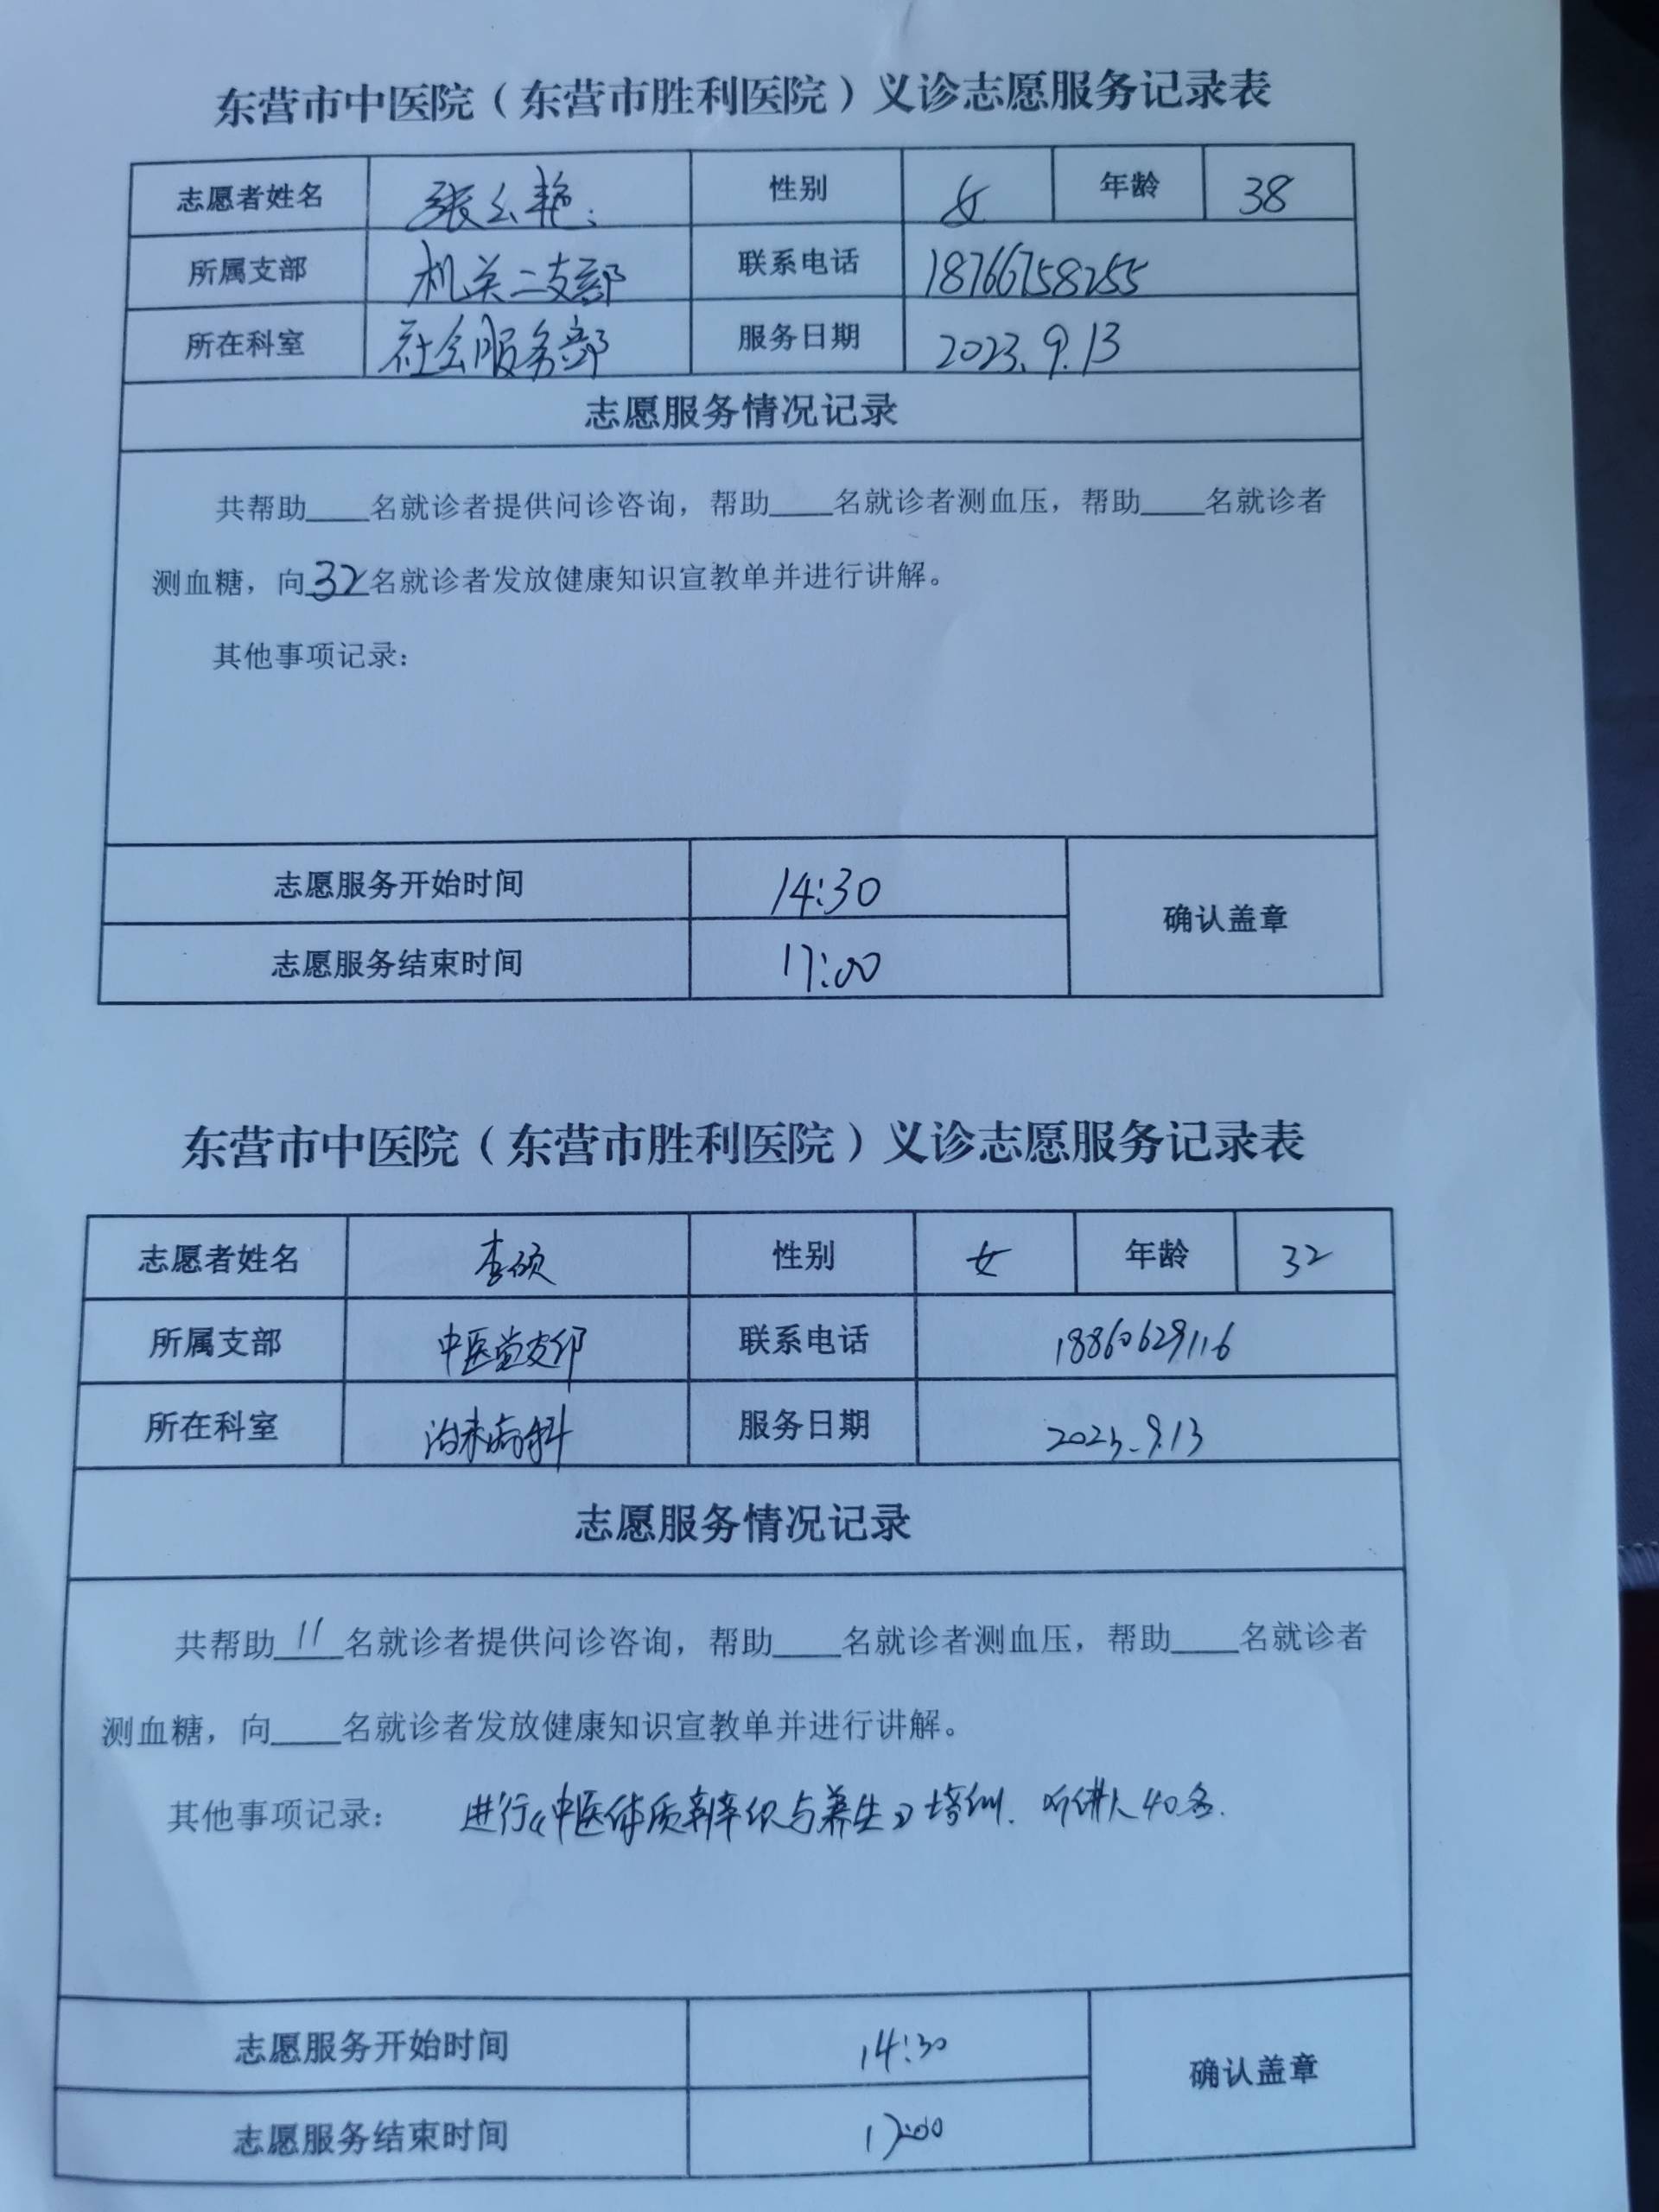 东营市中医院（东营市胜利医院）义诊志愿服务记录表
志愿者姓名 张么艳 性别 女 年龄 38
所属支部 机关二支部 联系电话 18766758255
所在科室 社会服务部 服务日期 2023.9.13
志愿服务情况记录
共帮助____名就诊者提供问诊咨询，帮助____名就诊者测血压，帮助____名就诊者
测血糖，向32名就诊者发放健康知识宣教单并进行讲解。
其他事项记录：
志愿服务开始时间 14:30
确认盖章
志愿服务结束时间 17:00
东营市中医院（东营市胜利医院）义诊志愿服务记录表
志愿者姓名 李硕 性别 女 年龄 32
所属支部 中医党支部 联系电话 18860629116
所在科室 治未病科 服务日期 2023.9.13
志愿服务情况记录
共帮助11名就诊者提供问诊咨询，帮助____名就诊者测血压，帮助____名就诊者
测血糖，向____名就诊者发放健康知识宣教单并进行讲解。
其他事项记录： 进行《中医体质辨识与养生》培训. 听讲人40名.
志愿服务开始时间 14:30
确认盖章
志愿服务结束时间 17:00